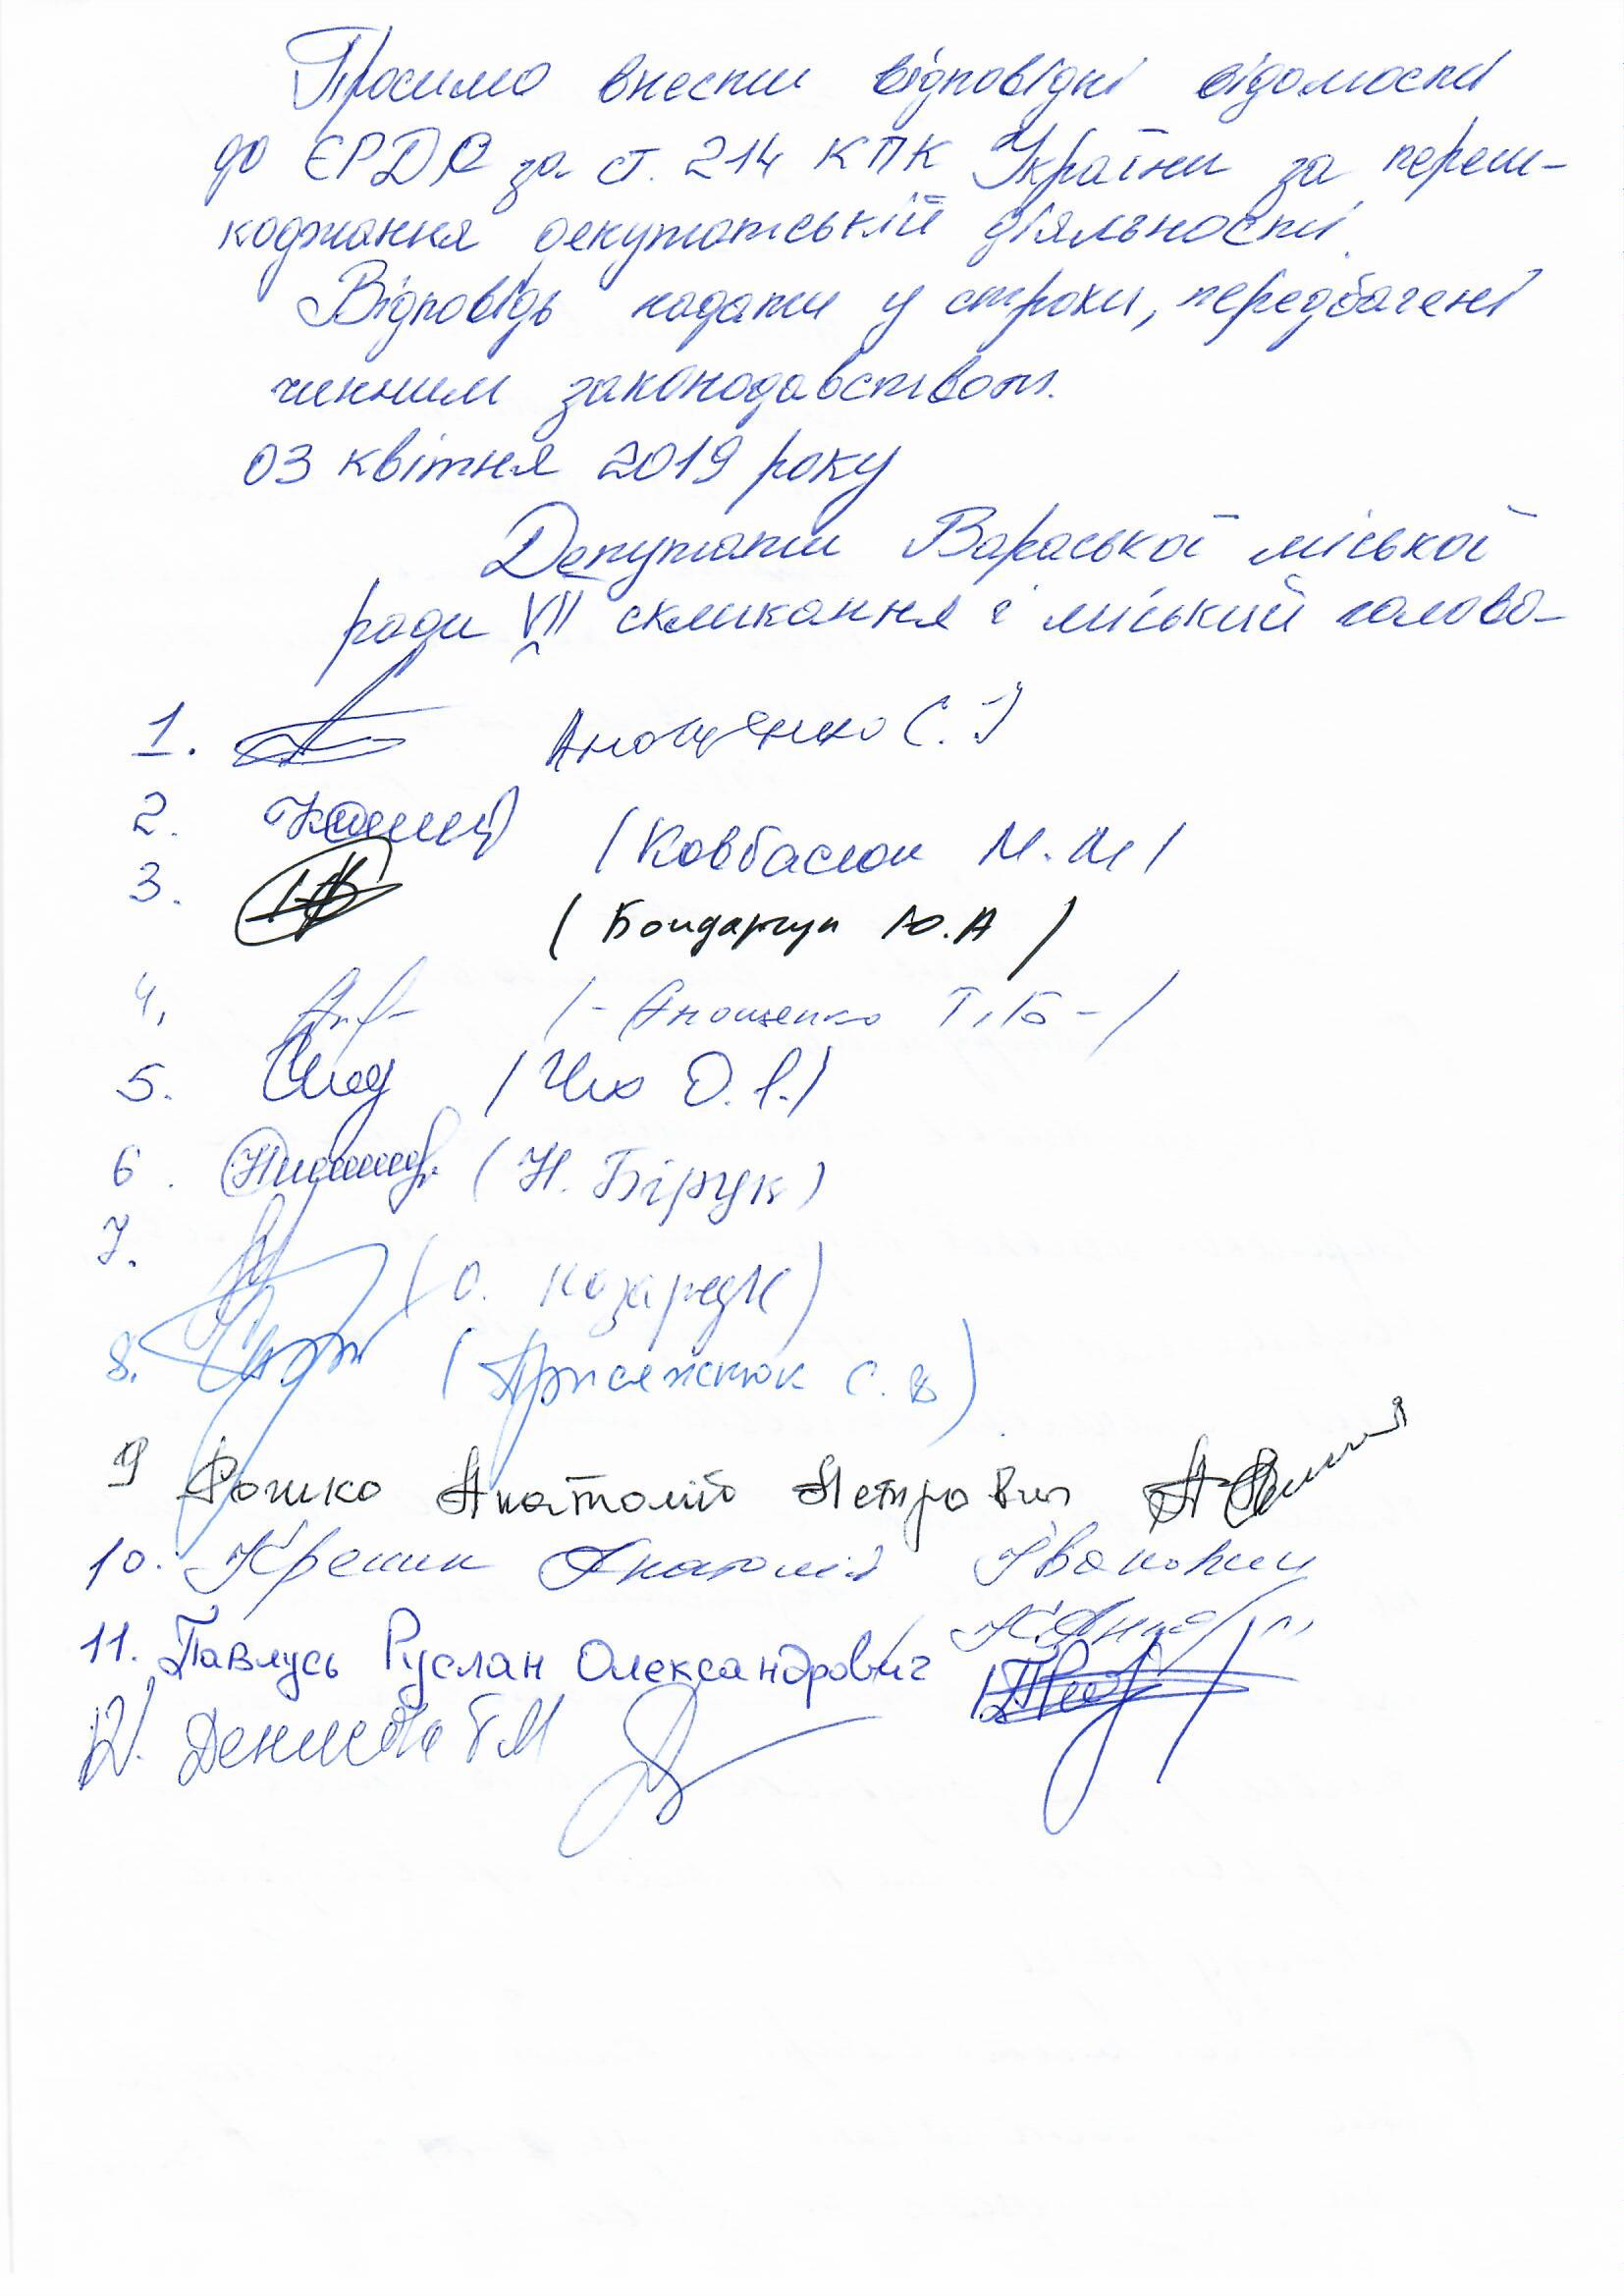 Просимо внести відповідні відомості
до ЄРДР за ст. 214 КПК України за переш-
коджання депутатській діяльності.
Відповідь надати у строки, передбачені
чинним законодавством.
03 квітня 2019 року
Депутати Вараської міської
ради VII скликання і міський голова-
1. Анощенко С. І
2. (Ковбасюк М. М)
3. (Бондарчук Ю.А)
4, (-Анощенко Т, Б-)
5. (Чих О. І.)
6. (Н. Бірук)
7. (О. Козаредк)
8. (Присяжнюк С. В)
9 Рошко Анатолій Петрович
10. Крешик Анатолій Іванович
11. Павлусь Руслан Олександрович
12. Денисова Т М